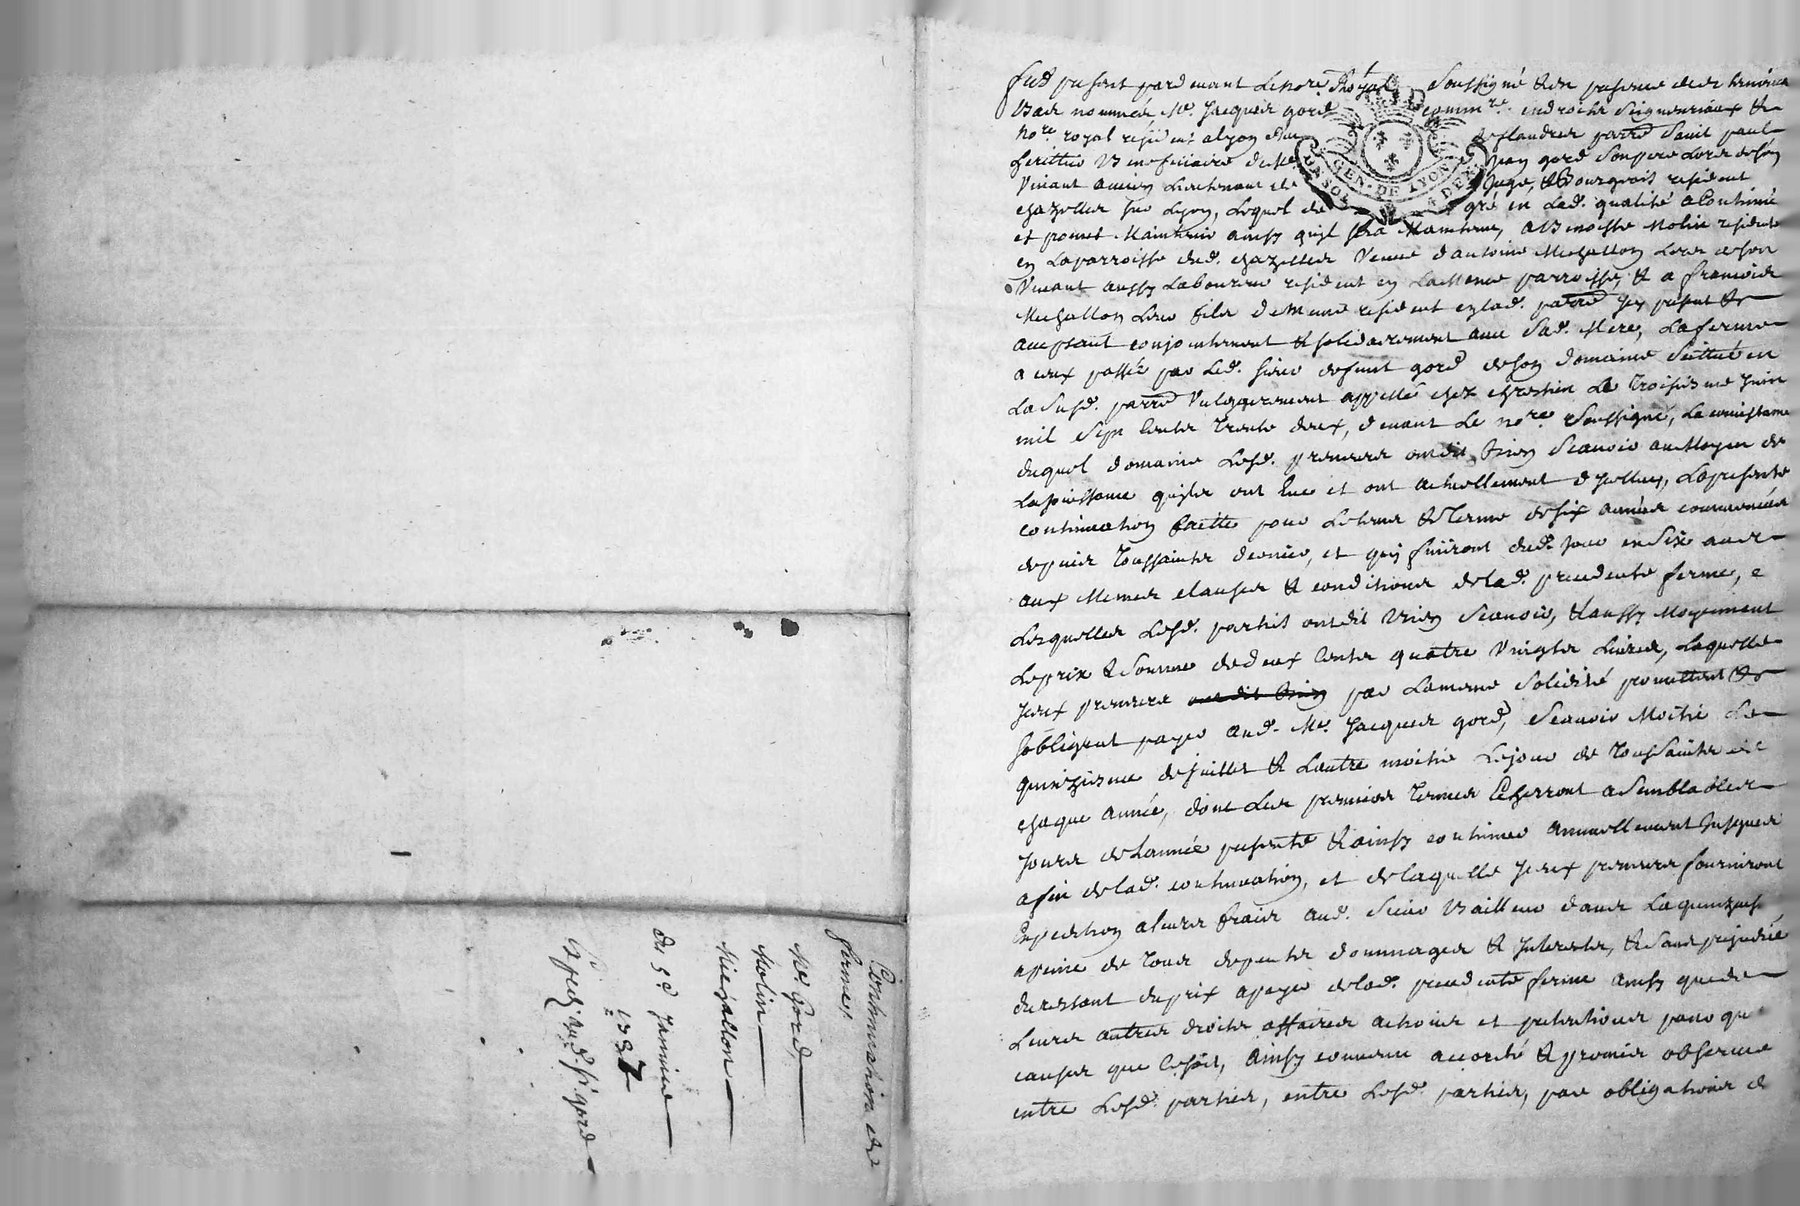 Continuation de
ferme,
Me Gord,
Molin
Michallon
du 5e Janvier
1737
Expedi aud. Sr. gord
Fut present pardevant Le no.re Royal soussigné & en presence des temoins
Bas nommés, Me. Jacques gord comm.re en droits seigneuriaux &
no.re royal resident a lyon rüe de flandres parr.e saint paul
heritier Beneficiaire de Me Jean gord son pere Lors de son
Vivant ancien Lieutenant de Juge, & Bourgeois resident
chazelles sur Lyon, Lequel de gré en Lad. qualité a Continué
et promet Maintenir ainsy quil sera Maintenu, a Benoiste Molin residente
en La parroisse dud. chazelles Veuve d'antoine Michallon Lors de son
Vivant aussy Laboureur resident en La Meme parroisse, & a francois
Michallon Leur fils dememe resident en lad. parr.e Icy present &
acceptant conjointement & solidairement avec Sad. Mere, La ferme
a eux passée par Led. sieur defunt gord de son domaine scittué en
La susd. parr.e Vulgairement appellé chez chrestien Le troisieme Juin
mil sept Cents trente deux, devant Le no.re soussigné, Le contenu
duquel domaine Lesd. preneurs ont dit bien scavoir au Moyen de
La jouissance quils ont Eue et ont actuellement d'Icelluy, La presente
continuation faitte pour Le tems & terme de six années commencées
depuis toussaints dernier, et quy finiront dud. jour en six ans
aux Memes clauses & conditions de lad. precedente ferme,
Lesquelles Lesd. partis ont dit bien scavoir, & aussy Moyennant
Le prix & somme de deux Cents quatre Vingts Livres, Laquelle
Iceux preneurs ont dit bien par La meme solidité promettent &
s'obligent payer aud. Me. Jacques gord, scavoir Moitié Le
quinzieme de juillet & L'autre moitié Le jour de toussaints de
chaque année, dont Les premiers termes Echerront a semblables
Jours de L'année presente & ainsy continuer annuellement Jusques
a fin de lad. continuation, et de laquelle Iceux preneurs fourniront
Expedition a leurs frais aud. sieur Bailleur dans La quinzaine
a peine de tous depents dommages & Interests, & sans prejudice
du restant du prix a payer de lad. precedente ferme ainsy que de
Leurs autres droits affaires actions et pretentions pour
causes que Ce soit, Ainsy convenu accordé & promis observer
entre Lesd. parties, entre Lesd. parties, par obligations de
GEN. DE LYON